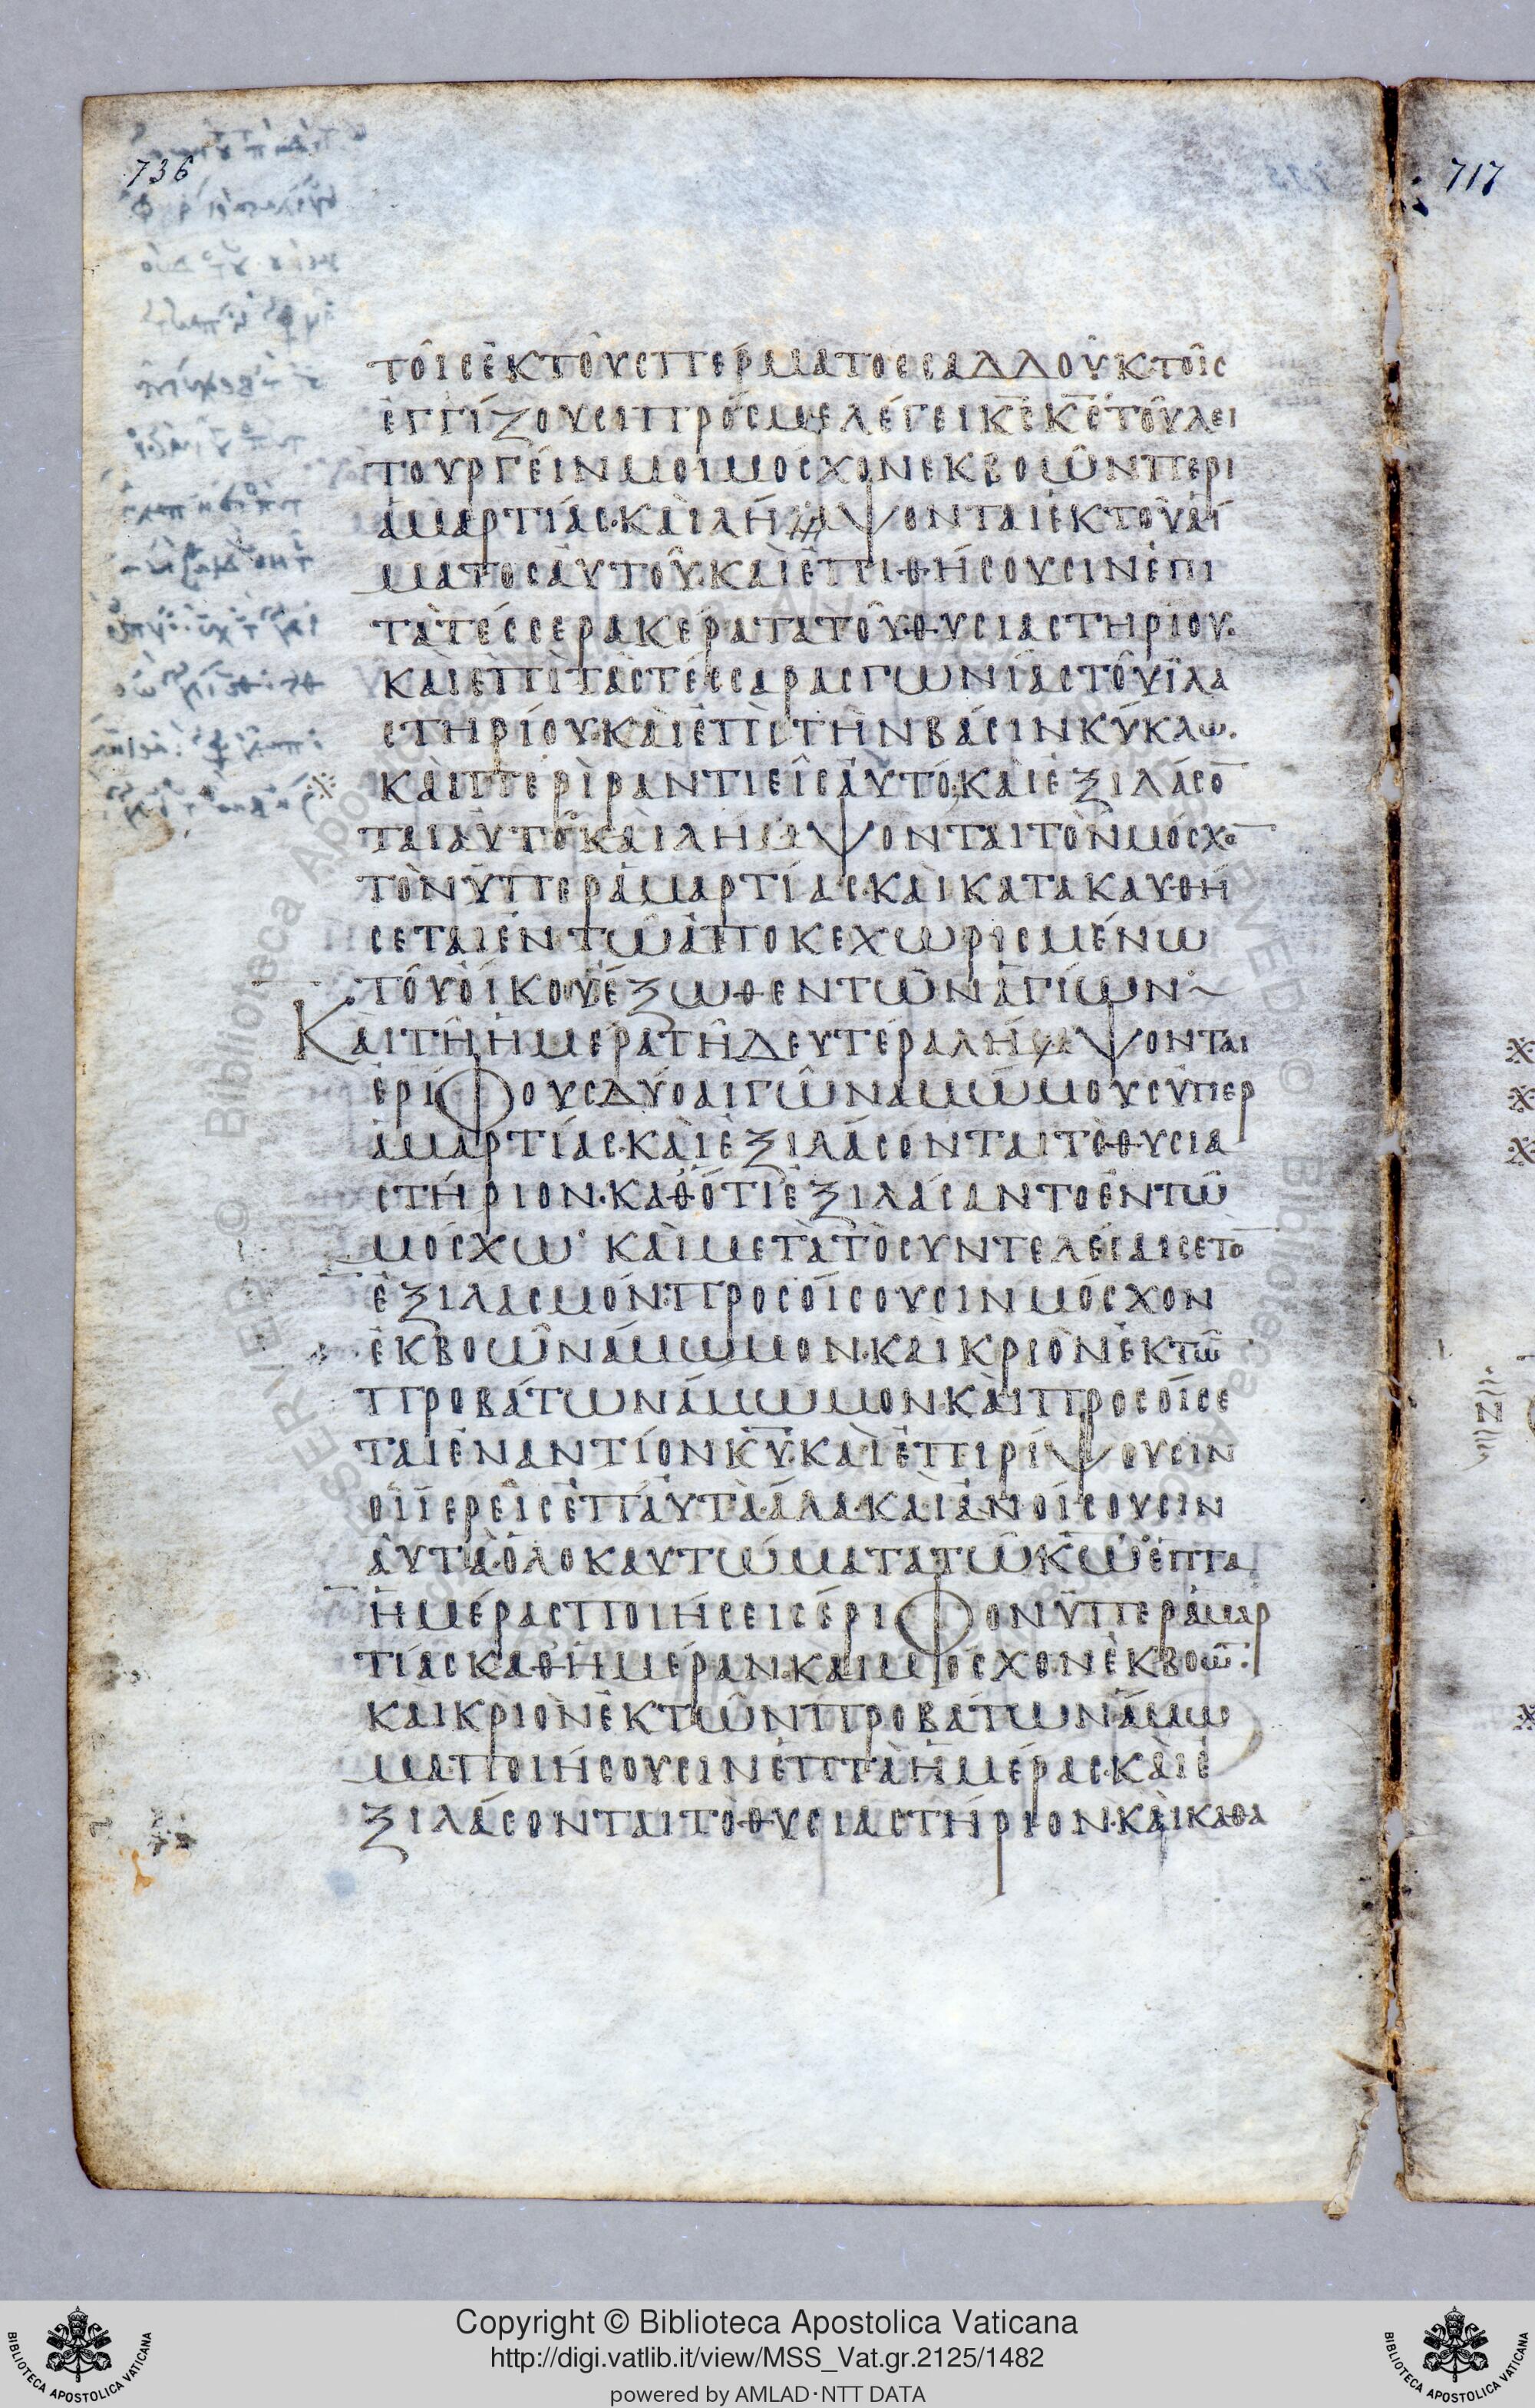 736
717
τοῖς ἐκ τοῦ σπέρματος σαδδοὺκ τοῖς
ἐγγίζουσι πρός με λέγει κ̅ς̅ κ̅ς̅ τοῦ λει
τουργεῖν μοι μόσχον ἐκ βοῶν περι
ἁμαρτίας· καὶ λήμψονται ἐκ τοῦ αἵ
ματος αὐτοῦ· καὶ ἐπιθήσουσιν ἐπι
τὰ τέσσερα κέρατα τοῦ θυσιαστηρίου·
καὶ ἐπὶ τὰς τέσσαρας γωνίας τοῦ ἱλα
στηρίου· καὶ ἐπὶ τὴν βάσιν κύκλω·
καὶ περὶραντιεῖς αὐτό· καὶ ἐξιλάσο̅
ται αὐτό· καὶ λήμψονται τὸν μόσχο̅
τὸν ὑπερ ἁμαρτίας· καὶ κατακαυθή
σεται ἐν τῶ ἀποκεχωρισμένω
τοῦ οἴκου ἔξωθεν τῶν ἁγίων·
Καὶ τῆ ἡμέρα τῆ δευτέρα λήμψονται
ἐρίφους δύο αἰγῶν ἀμώμους ὑπερ
ἁμαρτίας· καὶ ἐξιλάσονται τὸ θυσια
στήριον· καθότι ἐξιλάσαντο ἐν τῶ
μόσχω· καὶ μετὰ τὸ συντελέσαι σε το̅
ἐξιλασμόν· προσοίσουσιν μόσχον
ἐκ βοῶν ἄμωμον· καὶ κριὸν ἐκ τῶ̅
προβάτων ἄμωμον· καὶ προσοίσε
ται ἐναντίον κ̅υ̅· καὶ ἐπιρίψουσιν
οἱ ἱερεῖς ἐπ αὐτὰ ἅλα· καὶ ἀνοίσουσιν
αὐτὰ ὁλοκαυτώματα τῶ κ̅ω̅· ἑπτα
ἡμέρας ποιήσεις ἔριφον ὑπερ ἁμαρ
τίας καθ ἡμέραν· καὶ μόσχον ἐκ βοω̅·
καὶ κριὸν ἐκ τῶν προβάτων ἄμω
μα ποιήσουσιν ἑπτὰ ἡμέρας· καὶ ἐ
ξιλάσονται τὸ θυσιαστήριον· καὶ καθα
Copyright © Biblioteca Apostolica Vaticana
http://digi.vatlib.it/view/MSS_Vat.gr.2125/1482
powered by AMLAD·NTT DATA
BIBLIOTECA APOSTOLICA VATICANA
BIBLIOTECA APOSTOLICA VATICANA